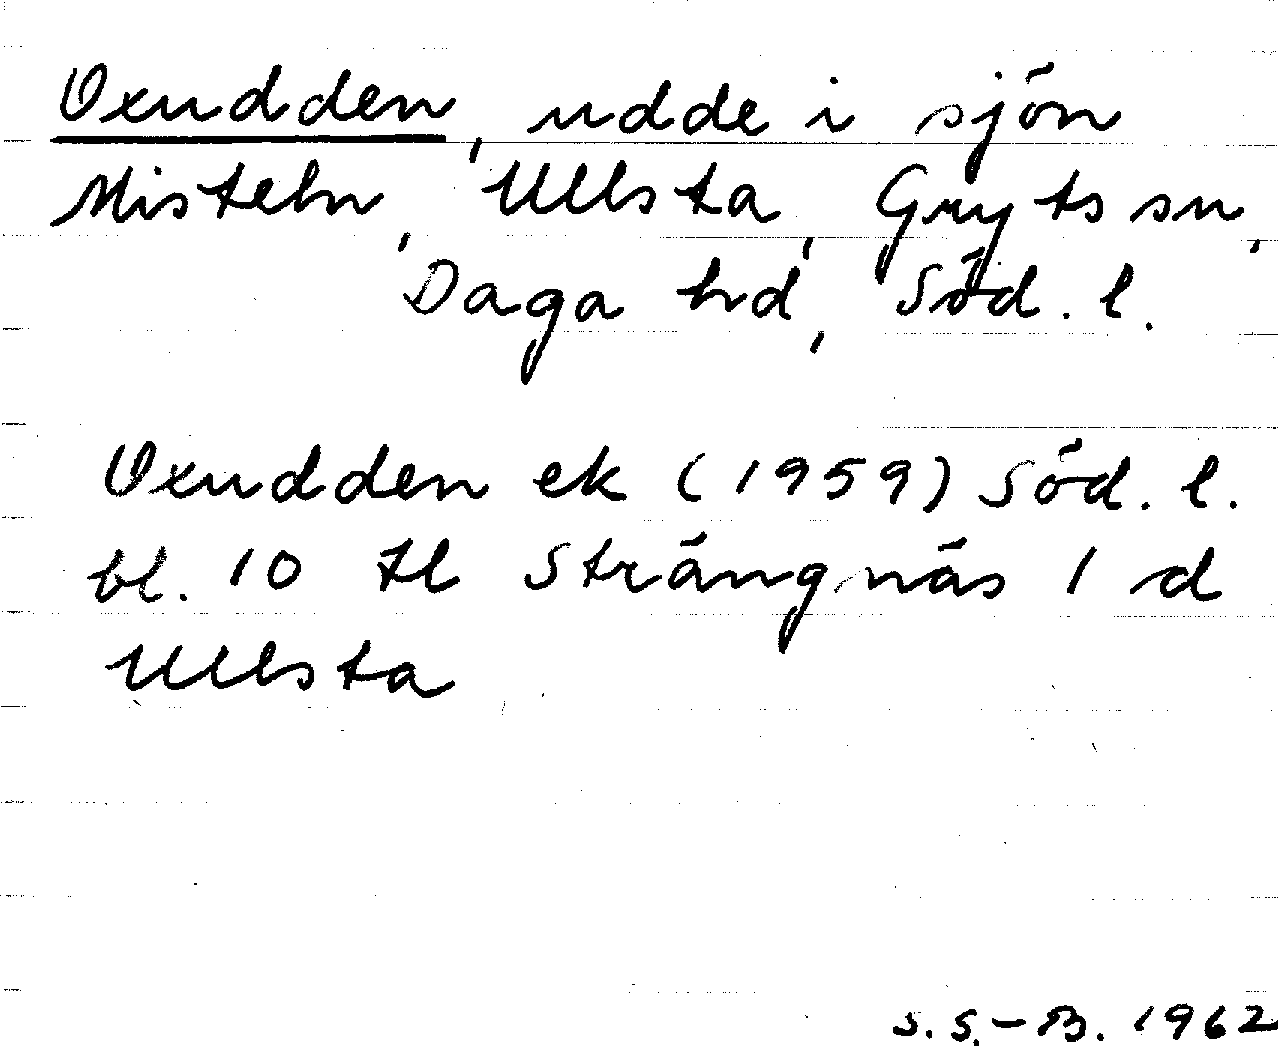 Oxudden, udde i sjön
Misteln, Ullsta, Gryts sn,
Daga hd, Söd. l.
Oxudden ek (1959) Söd. l.
bl. 10 tl Strängnäs 1 d
Ullsta
S. S.-B. 1962